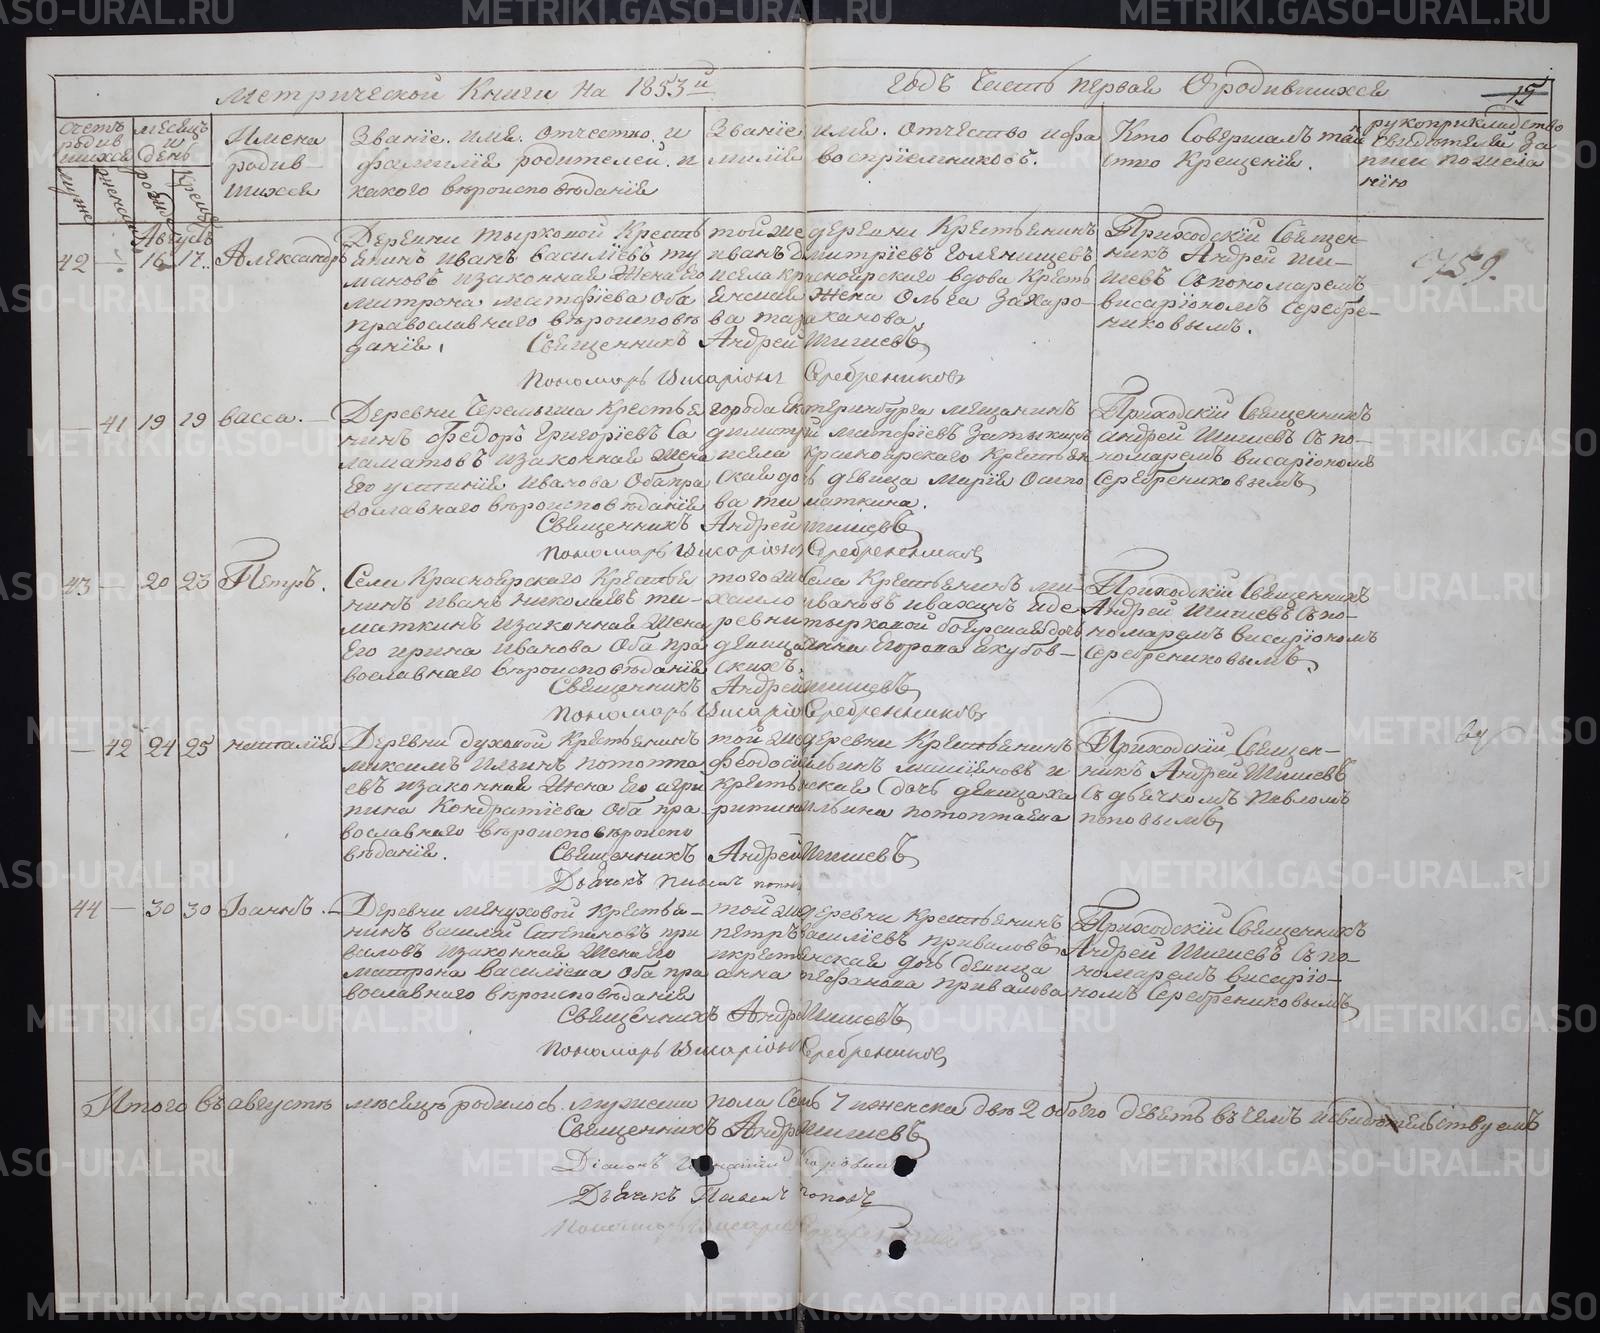 Метрической Книги на 1853й
годъ Часть первая О родившихся
15
Счетъ родившихся
мужеска
женска
Месяцъ и день
рожденія
крещенія
Имена родившихся
Званіе, имя, отчество, и
фамилія родителей, и
какого вѣроисповѣданія
Званіе имя, отчество и фа
милія воспріемниковъ.
Кто Совершалъ таин
ство Крещенія.
рукоприкладство
свидѣтелей за
писи по жела
нію
Августъ
42 — 16 17 Александръ
Деревни Тырковой Кресть
янинъ Иванъ Василіевъ Ту
мановъ и законная Жена Его
Митрона Матфіева Оба
православнаго вѣроисповѣ
данія.
той же деревни Крестьянинъ
Иванъ Димитріевъ Голенищевъ
и села Красноярского вдова Кресть
янская Жена Ольга Захаро
ва Тараканова
Приходскій Священ-
никъ Андрей Ши-
шевъ Съ пономаремъ
Висаріономъ Серебре-
никовымъ.
759.
Священникъ Андрей Шишевъ
Пономарь Висаріонъ Серебрениковъ
— 41 19 19 Васса.
Деревни Черемыша Крестья
нинъ Федоръ Григоріевъ Са
ламатовъ и законная Жена
Его Устинія Иванова Оба пра
вославнаго вѣроисповѣданія
города Екатеринбурга мещанинъ
Димитрій Матфіевъ Затыкинъ
и села Красноярского Крестьян
ская дочь девица Марія Осипо
ва Тиматкина.
Приходскій Священникъ
Андрей Шишевъ Съ по-
номаремъ Висаріономъ
Серебрениковымъ
Священникъ Андрей Шишевъ
Пономарь Висаріонъ Серебренниковъ
43 — 20 23 Петръ.
Села Красноярского Крестья
нинъ Иванъ Николаевъ Ти-
маткинъ и законная Жена
Его Ирина Иванова Оба пра
вославнаго вѣроисповѣданія
того же села Крестьянинъ Ми-
хаило Ивановъ Ивахинъ и де
ревни Тырковой боярская дочь
девица Анна Егорова Якубов-
скихъ.
Приходскій Священникъ
Андрей Шишевъ Съ по-
номаремъ Висаріономъ
Серебрениковымъ
Священникъ Андрей Шишевъ
Пономарь Висаріонъ Серебренниковъ
— 42 24 25 Наталія
Деревни Духовой Крестьянинъ
Максимъ Ильинъ Потопта
евъ и законная Жена Его Агри
пина Кондратіева Оба пра-
вославнаго вѣроисповѣроиспо
вѣданія.
той же деревни Крестьянинъ
Феодосій Ильинъ и
крестьянская дочь девица Ха
ритина Ильина Потоптаева
Приходскій Священ-
никъ Андрей Шишевъ
Съ дьячкомъ Павломъ
Поповымъ
Священникъ Андрей Шишевъ
Дьячокъ Павелъ Поповъ
44 — 30 30 Іоаннъ.
Деревни Ключовой Крестья-
нинъ Василій Степановъ При
валовъ и законная Жена Его
Матрона Василіева Оба пра
вославнаго вѣроисповѣданія
той же деревни Крестьянинъ
Петръ Василіевъ Приваловъ
и крестьянская дочь девица
Анна Стефанова Привалова
Приходскій Священникъ
Андрей Шишевъ Съ по-
номаремъ Висаріо-
номъ Серебрениковымъ
Священникъ Андрей Шишевъ
Пономарь Висаріонъ Серебрениковъ
Итого въ августѣ месяцѣ родилось мужеска пола Семь 7 и женска две 2 обоего девять въ чемъ и свидѣтельствуемъ
Священникъ Андрей Шишевъ
Діаконъ
Дьячокъ Павелъ Поповъ
Пономарь Висаріонъ Серебренниковъ
METRIKI.GASO-URAL.RU